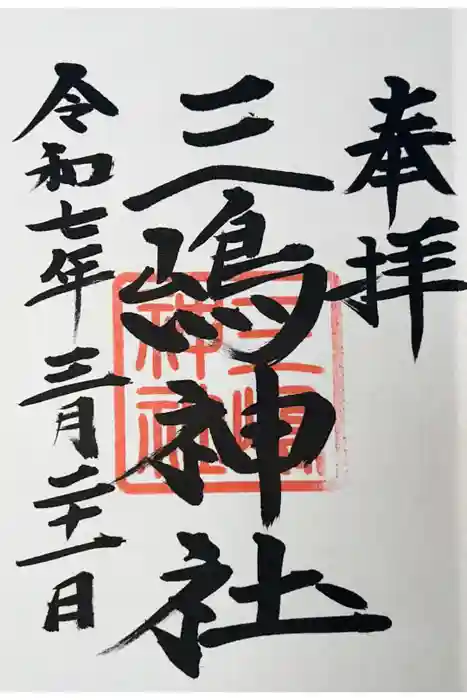 奉拝
三嶋神社
三嶋神社
令和七年三月二十一日